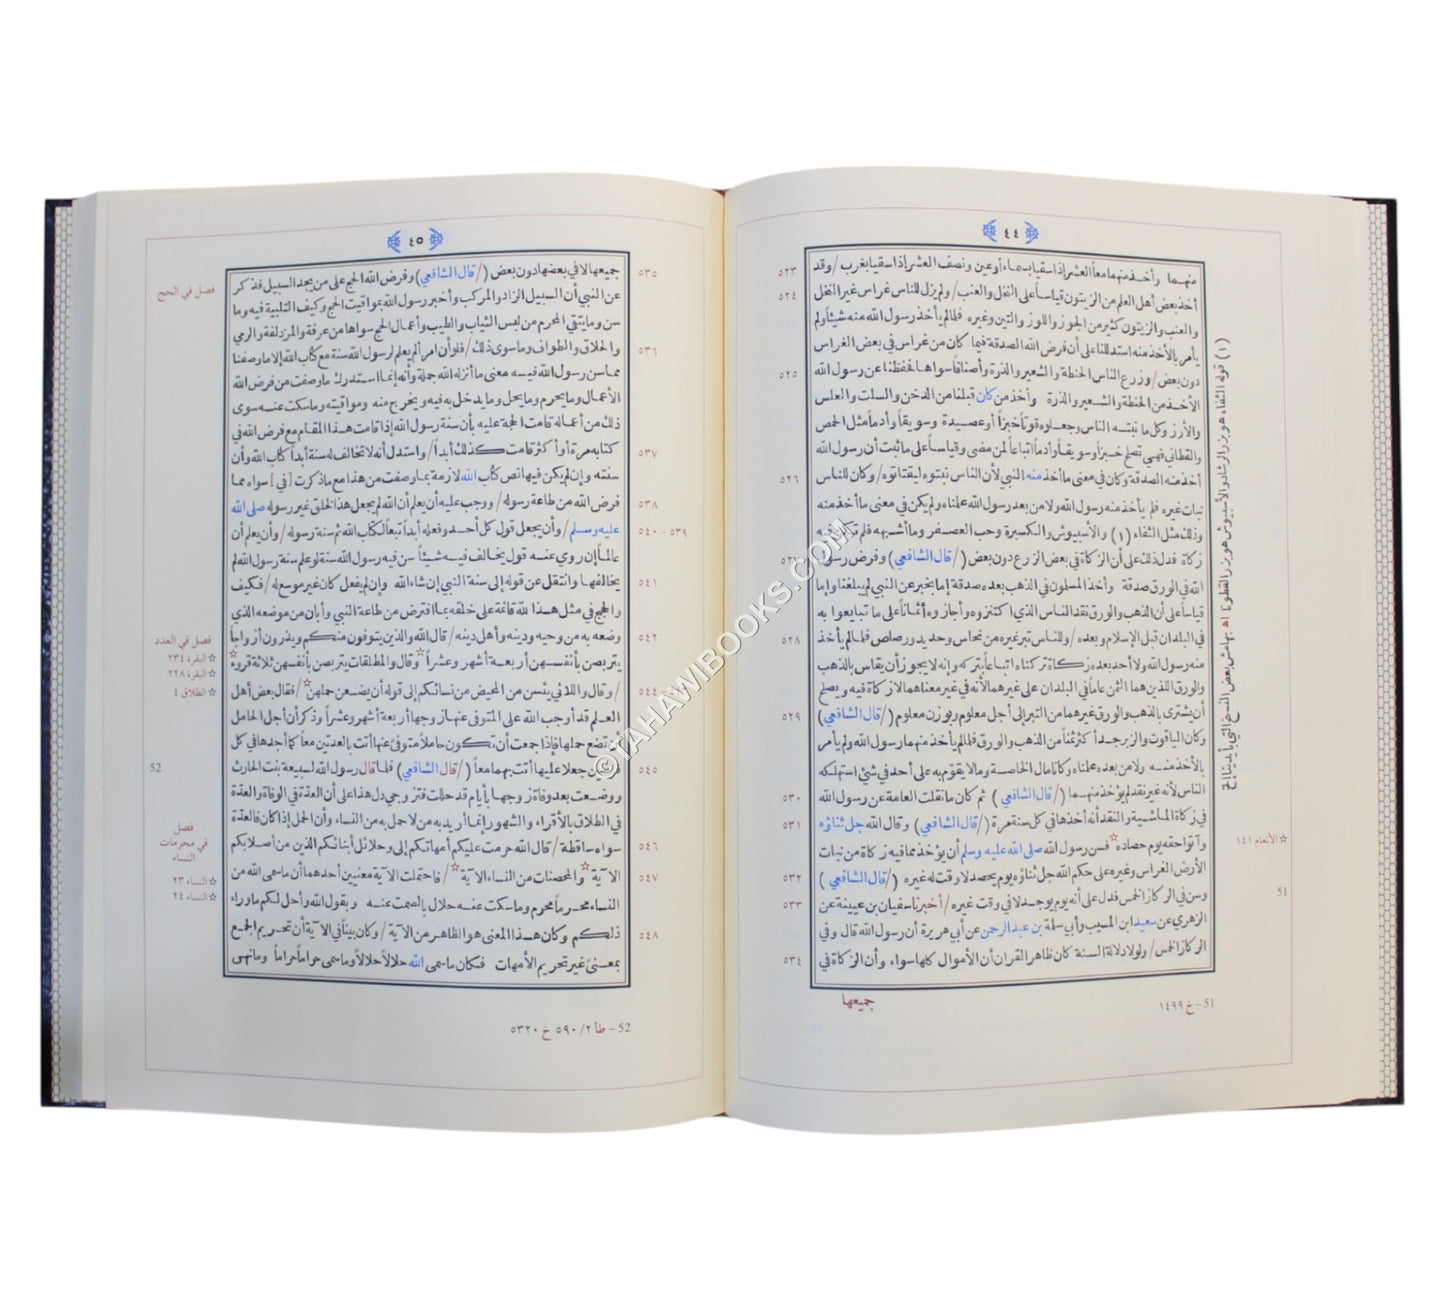 ٤٤
٥٢٣ منهما وأخذ منهما معاً العشر إذا سقيا بسماء أو عين ونصف العشر إذا سقيا بغرب / وقد
٥٢٤ أخذ بعض أهل العلم من الزيتون قياساً على النخل والعنب / ولم يزل للناس غراس غير النخل
والعنب والزيتون كثير من الجوز واللوز والتين وغيره فلما لم يأخذ رسول الله منه شيئاً ولم
يأمر بالأخذ منه استدللنا على أن فرض الله الصدقة فيما كان من غراس في بعض الغراس
٥٢٥ دون بعض / وزرع الناس الحنطة والشعير والذرة وأصنافاً سواها فحفظنا عن رسول الله
الأخذ من الحنطة والشعير والذرة وأخذ من كان قبلنا من الدخن والسلت والعلس
والأرز وكل ما نبته الناس وجعلوه قوتاً خبزاً أو عصيدة وسويقاً وأدماً مثل الحمص
والقطاني فهي تصلح خبزاً وسويقاً وأدماً اتباعاً لمن مضى وقياساً على ما ثبت أن رسول الله
٥٢٦ أخذ منه الصدقة وكان في معنى ما أخذ منه النبي لأن الناس نبتوه ليقتاتوه / وكان للناس
نبات غيره فلم يأخذ منه رسول الله ولا من بعد رسول الله علمناه ولم يكن في معنى ما أخذ منه
وذلك مثل الثفاء (١) والأسبيوش والكسبرة وحب العصفر وما أشبهه فلم تكن فيه
٥٢٧ زكاة فدل ذلك على أن الزكاة في بعض الزرع دون بعض (/ قال الشافعي) وفرض رسول
الله في الورق صدقة وأخذ المسلمون في الذهب بعده صدقة إما بخبر عن النبي لم يبلغنا وإما
قياساً على أن الذهب والورق نقد الناس الذي اكتنزوه وأجازوه أثماناً على ما تبايعوا به
٥٢٨ في البلدان قبل الإسلام وبعده / وللناس تبر غيره من نحاس وحديد ورصاص فلما لم يأخذ
منه رسول الله ولا أحد بعده زكاة تركناه اتباعاً بتركه وإنه لا يجوز أن يقاس بالذهب
والورق اللذين هما الثمن عاماً في البلدان على غيرهما لأنه في غير معناهما لا زكاة فيه ويصلح
٥٢٩ أن يشترى بالذهب والورق غيرهما من التبر إلى أجل معلوم وبوزن معلوم (/ قال الشافعي)
وكان الياقوت والزبرجد أكثر ثمناً من الذهب والورق فلما لم يأخذ منهما رسول الله ولم يأمر
بالأخذ منه ولا من بعده علمناه وكانا مال الخاصة وما لا يقوّم به على أحد في شيء استهلكه
٥٣٠ الناس لأنه غير نقد لم يؤخذ منهما (/ قال الشافعي) ثم كان ما نقلت العامة عن رسول الله
٥٣١ في زكاة الماشية والنقد أنه أخذها في كل سنة مرة (/ قال الشافعي) وقال الله جل ثناؤه
وآتوا حقه يوم حصاده☆ فسن رسول الله صلى الله عليه وسلم أن يؤخذ مما فيه زكاة من نبات
٥٣٢ الأرض الغراس وغيره على حكم الله جل ثناؤه يوم يحصد لا وقت له غيره (/ قال الشافعي)
٥٣٣ وسن في الركاز الخمس فدل على أنه يوم يوجد لا في وقت غيره / أخبرنا سفيان بن عيينة عن
الزهري عن سعيد ابن المسيب وأبي سلمة بن عبد الرحمن عن أبي هريرة أن رسول الله قال وفي
٥٣٤ الركاز الخمس / ولولا دلالة السنة كان ظاهر القرآن أن الأموال كلها سواء وأن الزكاة في
جميعها
51 – خ ١٤٩٩
☆ الأنعام ١٤١
51
(١) قوله الثفاء هو بزر الرشاد والأسبيوش هو بزر القطونا اه بهامش بعض النسخ التي بأيدينا إلخ
٤٥
٥٣٥ جميعها لا في بعضها دون بعض (/ قال الشافعي) وفرض الله الحج على من يجد السبيل فذكر
عن النبي أن السبيل الزاد والمركب وأخبر رسول الله بمواقيت الحج وكيف التلبية فيه وما
سن وما يتقي المحرم من لبس الثياب والطيب وأعمال الحج سواها من عرفة والمزدلفة والرمي
٥٣٦ والحلاق والطواف وما سوى ذلك / فلو أن امرأ لم يعلم لرسول الله سنة مع كتاب الله إلا ما وصفنا
مما سن رسول الله فيه معنى ما أنزله الله جملة وأنه إنما استدرك ما وصفت من فرض الله
الأعمال وما يحرم وما يحل وما يدخل به فيه ويخرج منه ومواقيته وما سكت عنه سوى
ذلك من أعماله قامت الحجة عليه بأن سنة رسول الله إذا قامت هذا المقام مع فرض الله في
٥٣٧ كتابه مرة أو أكثر قامت كذلك أبداً / واستدل أنه لا تخالف له سنة أبداً كتاب الله وأن
سنته وإن لم يكن فيها نص كتاب الله لازمة بما وصفت من هذا مع ما ذكرت [في] سواه مما
٥٣٨ فرض الله من طاعة رسوله / ووجب عليه أن يعلم أن الله لم يجعل هذا الخلق غير رسوله صلى الله
٥٣٩ – ٥٤٠ عليه وسلم / وأن يجعل قول كل أحد وفعله أبداً تبعاً لكتاب الله ثم سنة رسوله / وأن يعلم أن
عالماً إن روي عنه قول يخالف فيه شيئاً سن فيه رسول الله سنة لو علم سنة رسول الله لم
٥٤١ يخالفها وانتقل عن قوله إلى سنة النبي إن شاء الله وإن لم يفعل كان غير موسع له / فكيف
والحجج في مثل هذا لله قائمة على خلقه بما افترض من طاعة النبي وأبان من موضعه الذي
٥٤٢ وضعه به من وحيه ودينه وأهل دينه / قال الله والذين يتوفون منكم ويذرون أزواجاً
يتربصن بأنفسهن أربعة أشهر وعشراً☆ وقال والمطلقات يتربصن بأنفسهن ثلاثة قروء☆
٥٤٤ / وقال واللائي يئسن من المحيض من نسائكم إلى قوله أن يضعن حملهن☆ / فقال بعض أهل
العلم قد أوجب الله على المتوفى عنها زوجها أربعة أشهر وعشراً وذكر أن أجل الحامل
أن تضع حملها فإذا جمعت أن تكون حاملاً متوفى عنها أتت بالعدتين معاً كما أجدها في كل
٥٤٥ فرضين جعلا عليها أتت بهما معاً (/ قال الشافعي) فلما قال رسول الله لسبيعة بنت الحارث
ووضعت بعد وفاة زوجها بأيام قد حللت فتزوجي دل هذا على أن العدّة في الوفاة والعدة
في الطلاق بالأقراء والشهور إنما أريد به من لا حمل به من النساء وأن الحمل إذا كان فالعدة
٥٤٦ سواه ساقطة / قال الله حرمت عليكم أمهاتكم إلى وحلائل أبنائكم الذين من أصلابكم
٥٤٧ الآية☆ والمحصنات من النساء الآية☆ / فاحتملت الآية معنيين أحدهما أن ما سمى الله من
النساء محرماً محرم وما سكت عنه حلال بالصمت عنه وبقول الله وأحل لكم ما وراء
٥٤٨ ذلكم وكان هذا المعنى هو الظاهر من الآية / وكان بيناً في الآية أن تحريم الجمع
بمعنى غير تحريم الأمهات فكان ما سمى الله حلالاً حلالاً وما سمى حراماً حراماً وما نهى
52 – طأ ٢/ ٥٩٠ خ ٥٣٢٠
فصل في الحج
فصل في العدد
☆ البقرة ٢٣٤
☆ البقرة ٢٢٨
☆ الطلاق ٤
52
فصل
في محرمات
النساء
☆ النساء ٢٣
☆ النساء ٢٤
©TAHAWIBOOKS.COM